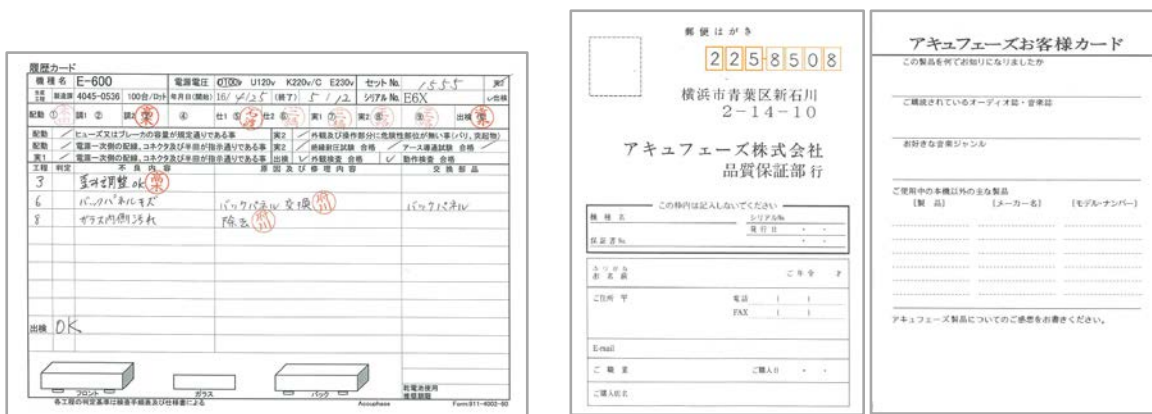 履歴カード
機種名 E-600 電源電圧 ○100v U120v K220v/C E230v セットNo. 1555
生産工程 製造票 4045-0536 100台/ロット 年月日(開始) 16/4/25 (終了) 5/12 シリアルNo. E6X レ仕様
配動 ① 調1 ② 調2 ③ ④ 仕1 ⑤ 仕2 ⑥ 実1 ⑦ 実2 ⑧ ⑨ 出検 ⑩
配動 ヒューズ又はブレーカの容量が規定通りである事 実2 外観及び操作部分に危険性部位が無い事(バリ、突起物)
配動 電源一次側の配線、コネクタ及び半田が指示通りである事 実2 絶縁耐圧試験 合格 アース導通試験 合格
実1 電源一次側の配線、コネクタ及び半田が指示通りである事 出検 レ 外観検査 合格 レ 動作検査 合格
工程 判定 不良内容 原因及び修理内容 交換部品
3 再調整OK
6 バックパネルキズ バックパネル交換 バックパネル
8 ガラス内側汚れ 除去
出検 OK
フロント ガラス バック 乾電池使用推奨期限
各工程の判定基準は検査手順表及び仕様書による Accuphase Form:811-4002-80
郵便はがき
225-8508
横浜市青葉区新石川
2-14-10
アキュフェーズ株式会社
品質保証部 行
この枠内は記入しないでください
機種名 シリアルNo.
発行日 ・ ・
保証書No. ・ ・
ふりがな
お名前 ご年令 才
ご住所 〒 電話 ( )
FAX ( )
E-mail
ご職業 ご購入日 ・ ・
ご購入店名
アキュフェーズお客様カード
この製品を何でお知りになりましたか
ご購読されているオーディオ誌・音楽誌
お好きな音楽ジャンル
ご使用中の本機以外の主な製品
[製品] [メーカー名] [モデル・ナンバー]
アキュフェーズ製品についてのご感想をお書きください。